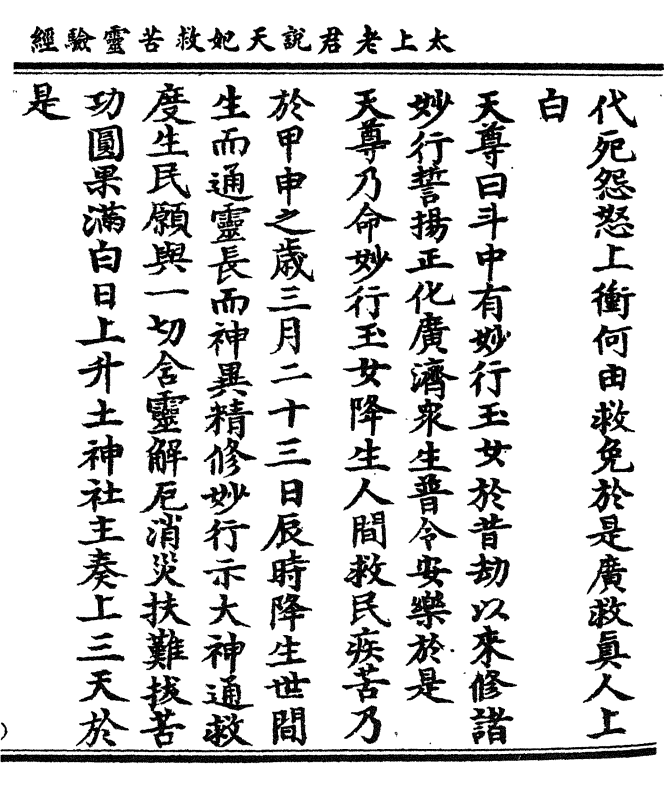 太上老君說天妃救苦靈驗經
代死怨怒上衝何由救免於是廣救眞人上
白
天尊曰斗中有妙行玉女於昔劫以來修諸
妙行誓揚正化廣濟衆生普令安樂於是
天尊乃命妙行玉女降生人間救民疾苦乃
於甲申之歲三月二十三日辰時降生世間
生而通靈長而神異精修妙行示大神通救
度生民願與一切含靈解厄消災扶難拔苦
功圓果滿白日上升土神社主奏上三天於
是